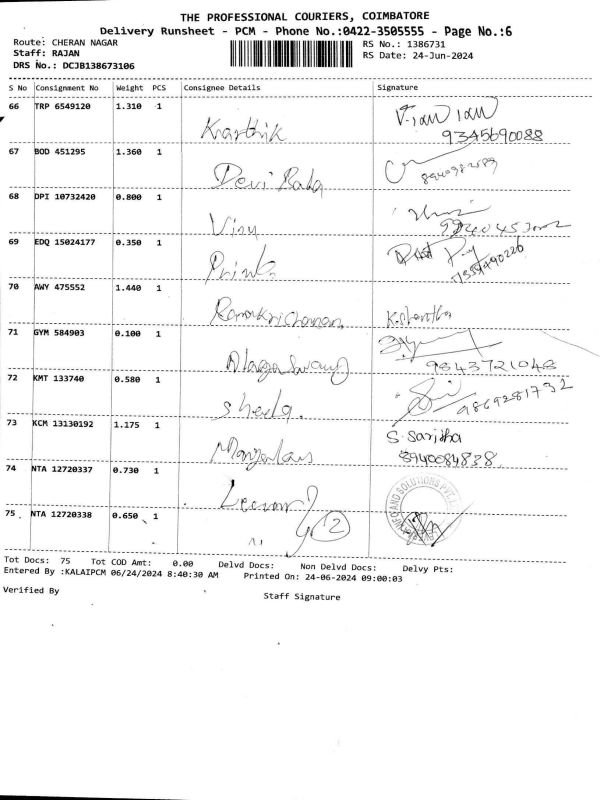 THE PROFESSIONAL COURIERS, COIMBATORE
Delivery Runsheet - PCM - Phone No.:0422-3505555 - Page No.:6
Route: CHERAN NAGAR
RS No.: 1386731
Staff: RAJAN
RS Date: 24-Jun-2024
DRS No.: DCJB138673106
S No Consignment No Weight PCS Consignee Details Signature
66 TRP 6549120 1.310 1
Karthik
9345690088
67 BOD 451295 1.360 1
Devi Bala
68 DPI 10732420 0.800 1
Vinu
69 EDQ 15024177 0.350 1
70 AWY 475552 1.440 1
Ramakrichanan
71 GYM 584903 0.100 1
Alaga Swamy
9843721048
72 KMT 133740 0.580 1
Sheela.
9869281732
73 KCM 13130192 1.175 1
S. Saritha
8940084838.
74 NTA 12720337 0.730 1
75 . NTA 12720338 0.650 1
2
Tot Docs: 75 Tot COD Amt: 0.00 Delvd Docs: Non Delvd Docs: Delvy Pts:
Entered By :KALAIPCM 06/24/2024 8:40:30 AM Printed On: 24-06-2024 09:00:03
Verified By
Staff Signature